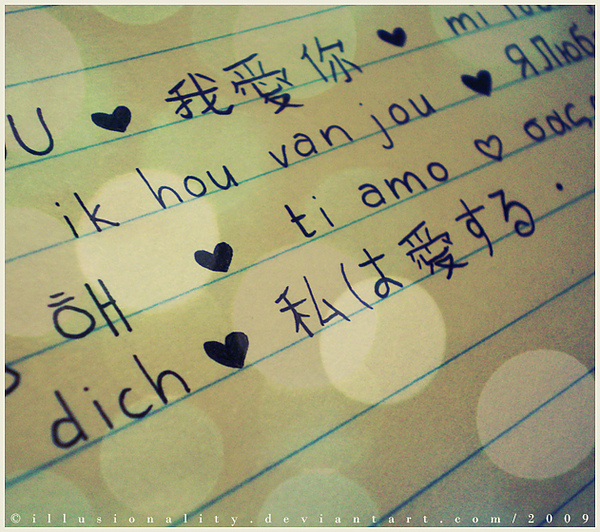 U ♥ 我愛你 ♥ mi
ik hou van jou ♥ Я Люб
해 ♥ ti amo ♡ σας
dich ♥ 私は愛する.
©illusionality.deviantart.com/2009